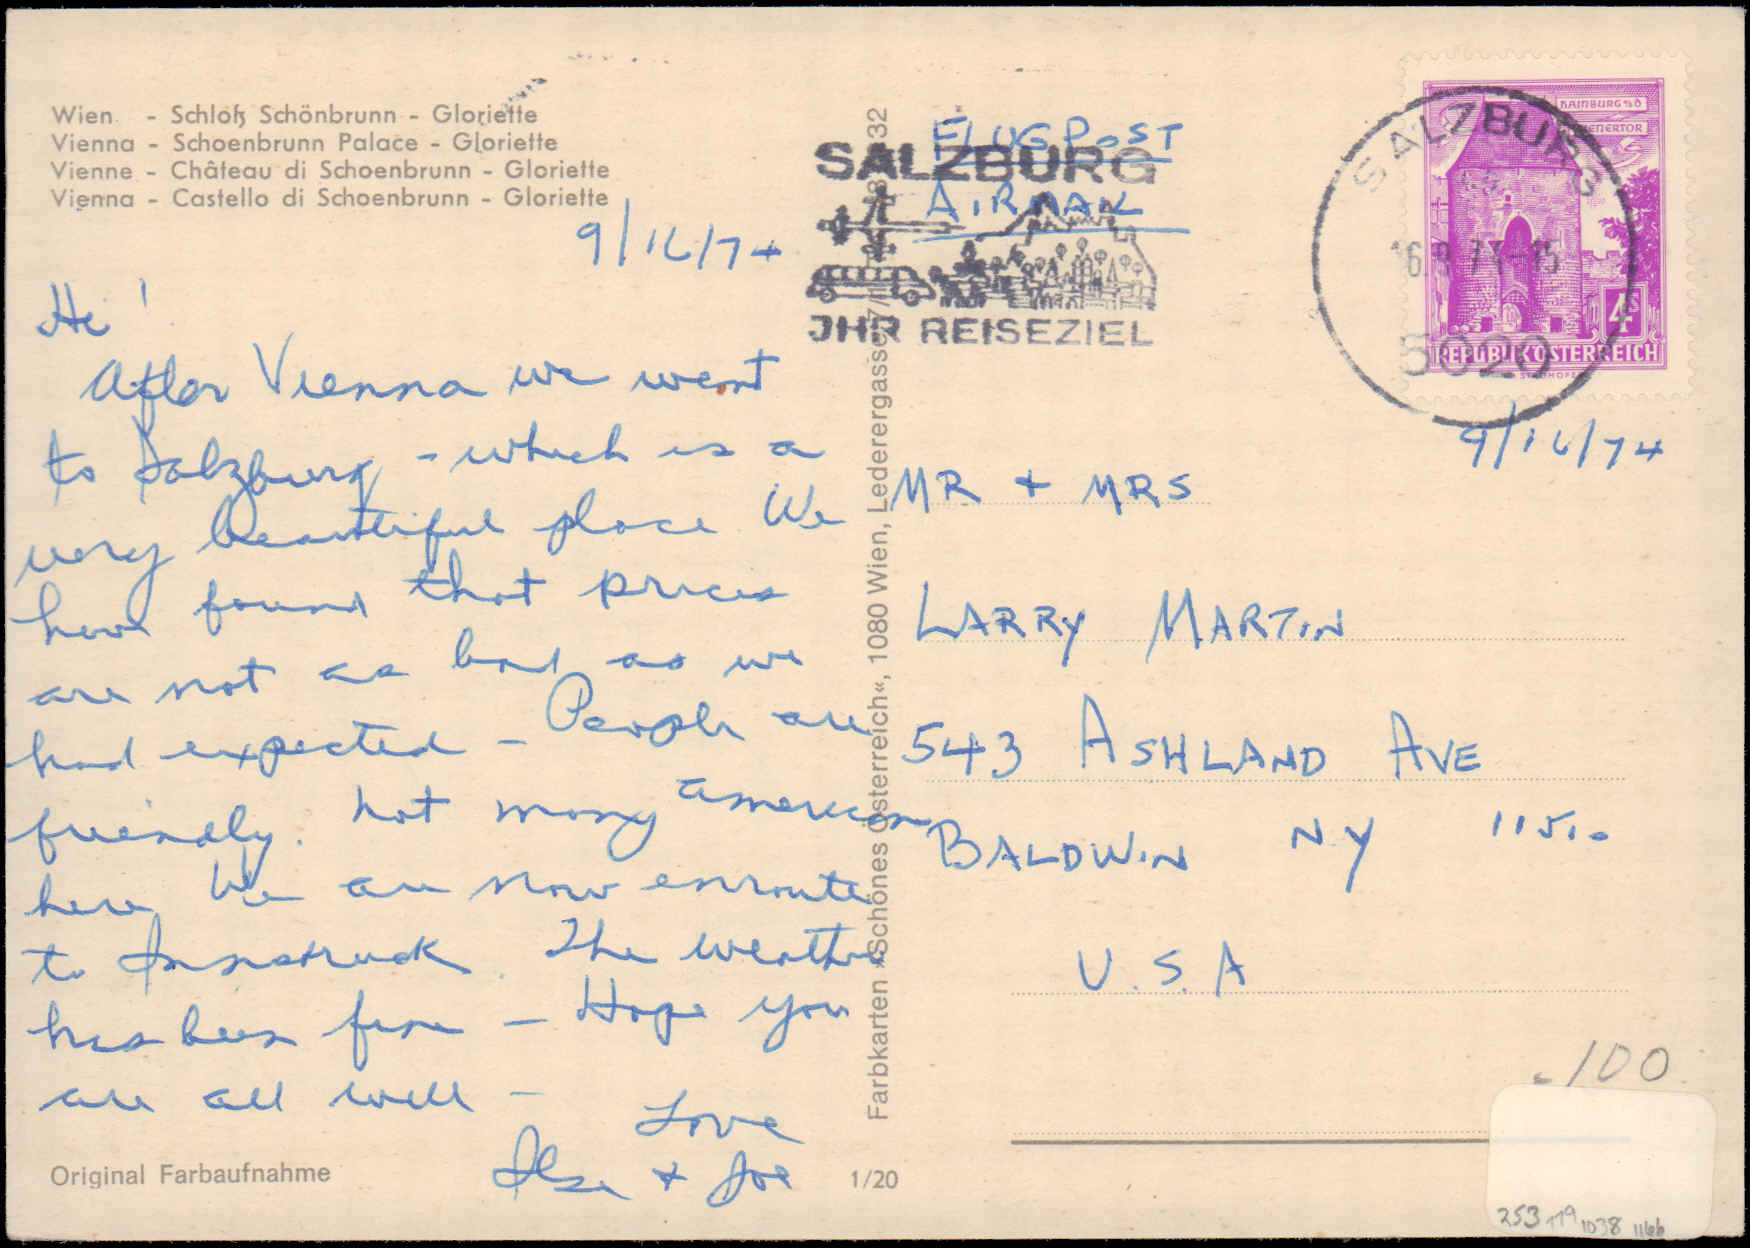 Wien - Schloß Schönbrunn - Gloriette
Vienna - Schoenbrunn Palace - Gloriette
Vienne - Château di Schoenbrunn - Gloriette
Vienna - Castello di Schoenbrunn - Gloriette
9/16/74
Hi!
After Vienna we went
to Salzburg - which is a
very beautiful place We
have found that prices
are not as bad as we
had expected - People are
friendly. Not many American
here We are now enroute
to Innsbruck. The weather
has been fine - Hope you
are all well -
Love
Ilse + Joe
Original Farbaufnahme
1/20
Farbkarten »Schönes Österreich«, 1080 Wien, Lederergasse
32
FLUGPOST
AIRMAIL
SALZBURG
JHR REISEZIEL
SALZBURG
16.9.74-15
5020
HAINBURG a/D
WIENERTOR
4S
REPUBLIK ÖSTERREICH
9/16/74
MR + MRS
LARRY MARTIN
543 ASHLAND AVE
BALDWIN NY 11510
U.S.A
.100
253 119 1038 1166